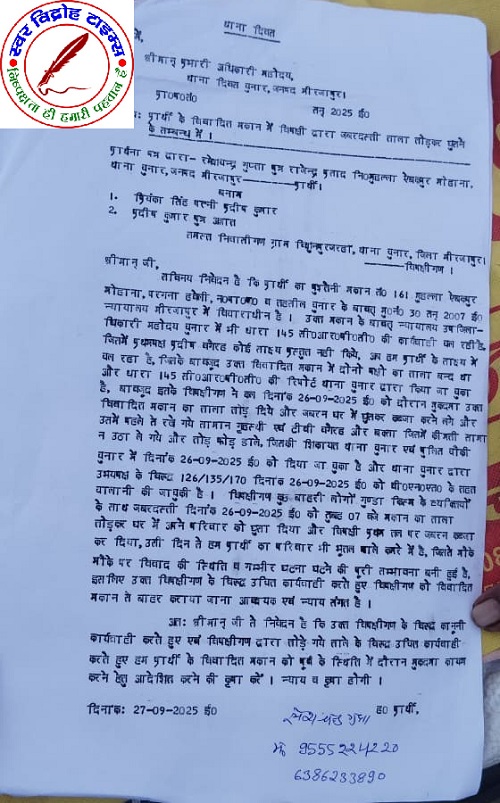 स्वर विद्रोह टाइम्स
निष्पक्षता ही हमारी पहचान है
थाना दिवस
श्रीमान् प्रभारी अधिकारी महोदय,
थाना दिवस चुनार, जनपद मीरजापुर।
प्रा०प०सं० सन् 2025 ई०
प्रार्थी के विवादित मकान में विपक्षी द्वारा जबरदस्ती ताला तोड़कर घुसने
के सम्बन्ध में ।
प्रार्थना पत्र द्वारा- रमेशचन्द्र गुप्ता पुत्र राजेन्द्र प्रसाद नि०मुहल्ला मोहाना,
थाना चुनार, जनपद मीरजापुर प्रार्थी।
बनाम
1. प्रियंका सिंह पत्नी प्रदीप कुमार
2. प्रदीप कुमार पुत्र अज्ञात
समस्त निवासीगण ग्राम थाना चुनार, जिला मीरजापुर।
विपक्षीगण ।
श्रीमान् जी,
सविनय निवेदन है कि प्रार्थी का पुश्तैनी मकान नं० 161 मुहल्ला
मोहाना, परगना हवेली, तहसील चुनार के बाबत् मु०नं० 30 सन् 2007 ई०
न्यायालय मीरजापुर में विचाराधीन है । उक्त मकान के बाबत् न्यायालय उप जिला-
धिकारी महोदय चुनार में भी धारा 145 सी०आर०पी०सी० की कार्यवाही चल रही है,
जिसमें प्रथमपक्ष प्रदीप वगैरह कोई साक्ष्य प्रस्तुत नहीं किये, अब हम प्रार्थी के साक्ष्य में
चल रहा है, जिसके बावजूद उक्त विवादित मकान में दोनो पक्षो का ताला बन्द था
और धारा 145 सी०आर०पी०सी० की रिपोर्ट थाना चुनार द्वारा किया जा चुका
है, बावजूद इसके विपक्षीगण ने कल दिनांक 26-09-2025 ई० को दौरान मुकदमा उक्त
विवादित मकान का ताला तोड़ दिये और जबरन घर में घुसकर कब्जा करने लगे और
उसमें पहले से रखे गये सामान गृहस्थी एवं टीवी वगैरह और बक्सा जिसमें कीमती सामा
न उठा ले गये और तोड़ फोड़ डाले, जिसकी शिकायत थाना चुनार एवं पुलिस चौकी
चुनार में दिनांक 26-09-2025 ई० को दिया जा चुका है और थाना चुनार द्वारा
उभयपक्ष के विरूद्ध 126/135/170 दिनांक 26-09-2025 ई० को बी०एन०एस० के तहत
चालानी की जाचुकी है । विपक्षीगण कुछ बाहरी लोगों गुण्डा किस्म के व्यक्तियों
के साथ जबरदस्ती दिनांक 26-09-2025 ई० को सुबह 07 बजे मकान का ताला
तोड़कर घर में अपने परिवार को घुसा दिया और विपक्षी प्रथम तल पर जबरन कब्जा
कर दिया, उसी दिन से हम प्रार्थी का परिवार भी भूतल वाले कमरे में है, जिससे मौके
मौके पर विवाद की स्थिति व गम्भीर घटना घटने की पूरी सम्भावना बनी हुई है,
इसलिए उक्त विपक्षीगण के विरूद्ध उचित कार्यवाही करते हुए विपक्षीगण को विवादित
मकान से बाहर कराया जाना आवश्यक एवं न्याय संगत है ।
अतः श्रीमान् जी से निवेदन है कि उक्त विपक्षीगण के विरूद्ध कानूनी
कार्यवाही करते हुए एवं विपक्षीगण द्वारा तोड़े गये ताले के विरूद्ध उचित कार्यवाही
करते हुए हम प्रार्थी के विवादित मकान को पूर्व के स्थिति में दौरान मुकदमा कायम
करने हेतु आदेशित करने की कृपा करें । न्याय व कृपा होगी ।
दिनांक: 27-09-2025 ई० ह० प्रार्थी,
मो 9555224220
6386233890